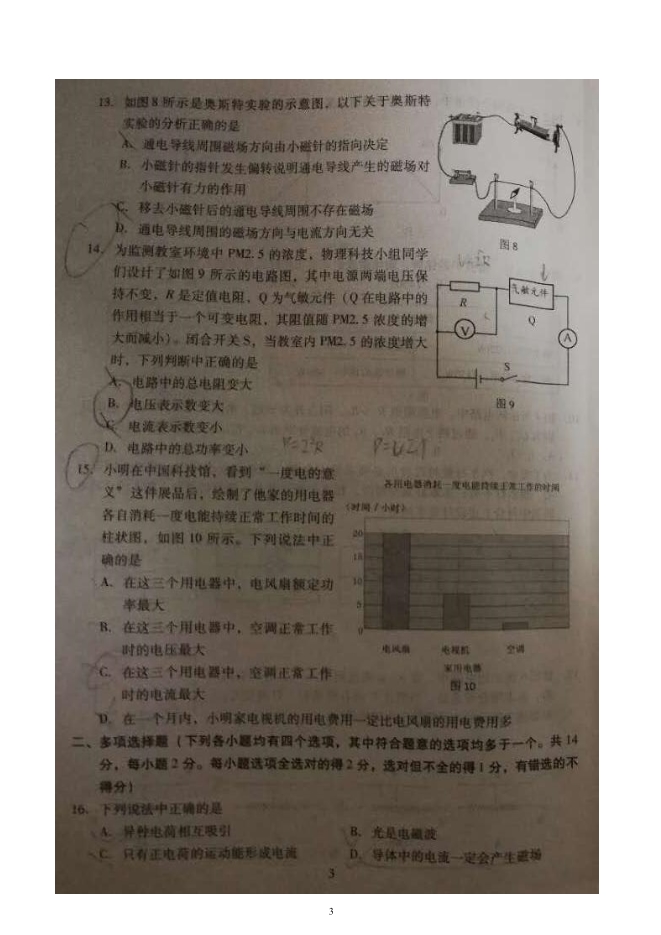 13. 如图8所示是奥斯特实验的示意图，以下关于奥斯特
实验的分析正确的是
A. 通电导线周围磁场方向由小磁针的指向决定
B. 小磁针的指针发生偏转说明通电导线产生的磁场对
小磁针有力的作用
C. 移去小磁针后的通电导线周围不存在磁场
D. 通电导线周围的磁场方向与电流方向无关
图8
14. 为监测教室环境中PM2.5的浓度，物理科技小组同学
们设计了如图9所示的电路图，其中电源两端电压保
持不变，R是定值电阻，Q为气敏元件（Q在电路中的
作用相当于一个可变电阻，其阻值随PM2.5浓度的增
大而减小）。闭合开关S，当教室内PM2.5的浓度增大
时，下列判断中正确的是
A. 电路中的总电阻变大
B. 电压表示数变大
C. 电流表示数变小
D. 电路中的总功率变小
R
气敏元件
Q
V
A
S
图9
15. 小明在中国科技馆，看到“一度电的意
义”这件展品后，绘制了他家的用电器
各自消耗一度电能持续正常工作时间的
柱状图，如图10所示。下列说法中正
确的是
A. 在这三个用电器中，电风扇额定功
率最大
B. 在这三个用电器中，空调正常工作
时的电压最大
C. 在这三个用电器中，空调正常工作
时的电流最大
D. 在一个月内，小明家电视机的用电费用一定比电风扇的用电费用多
各用电器消耗一度电能持续正常工作的时间
（时间/小时）
20
15
10
5
0
电风扇 电视机 空调
家用电器
图10
二、多项选择题（下列各小题均有四个选项，其中符合题意的选项均多于一个。共14
分，每小题2分。每小题选项全选对的得2分，选对但不全的得1分，有错选的不
得分）
16. 下列说法中正确的是
A. 异种电荷相互吸引 B. 光是电磁波
C. 只有正电荷的运动能形成电流 D. 导体中的电流一定会产生磁场
3
3